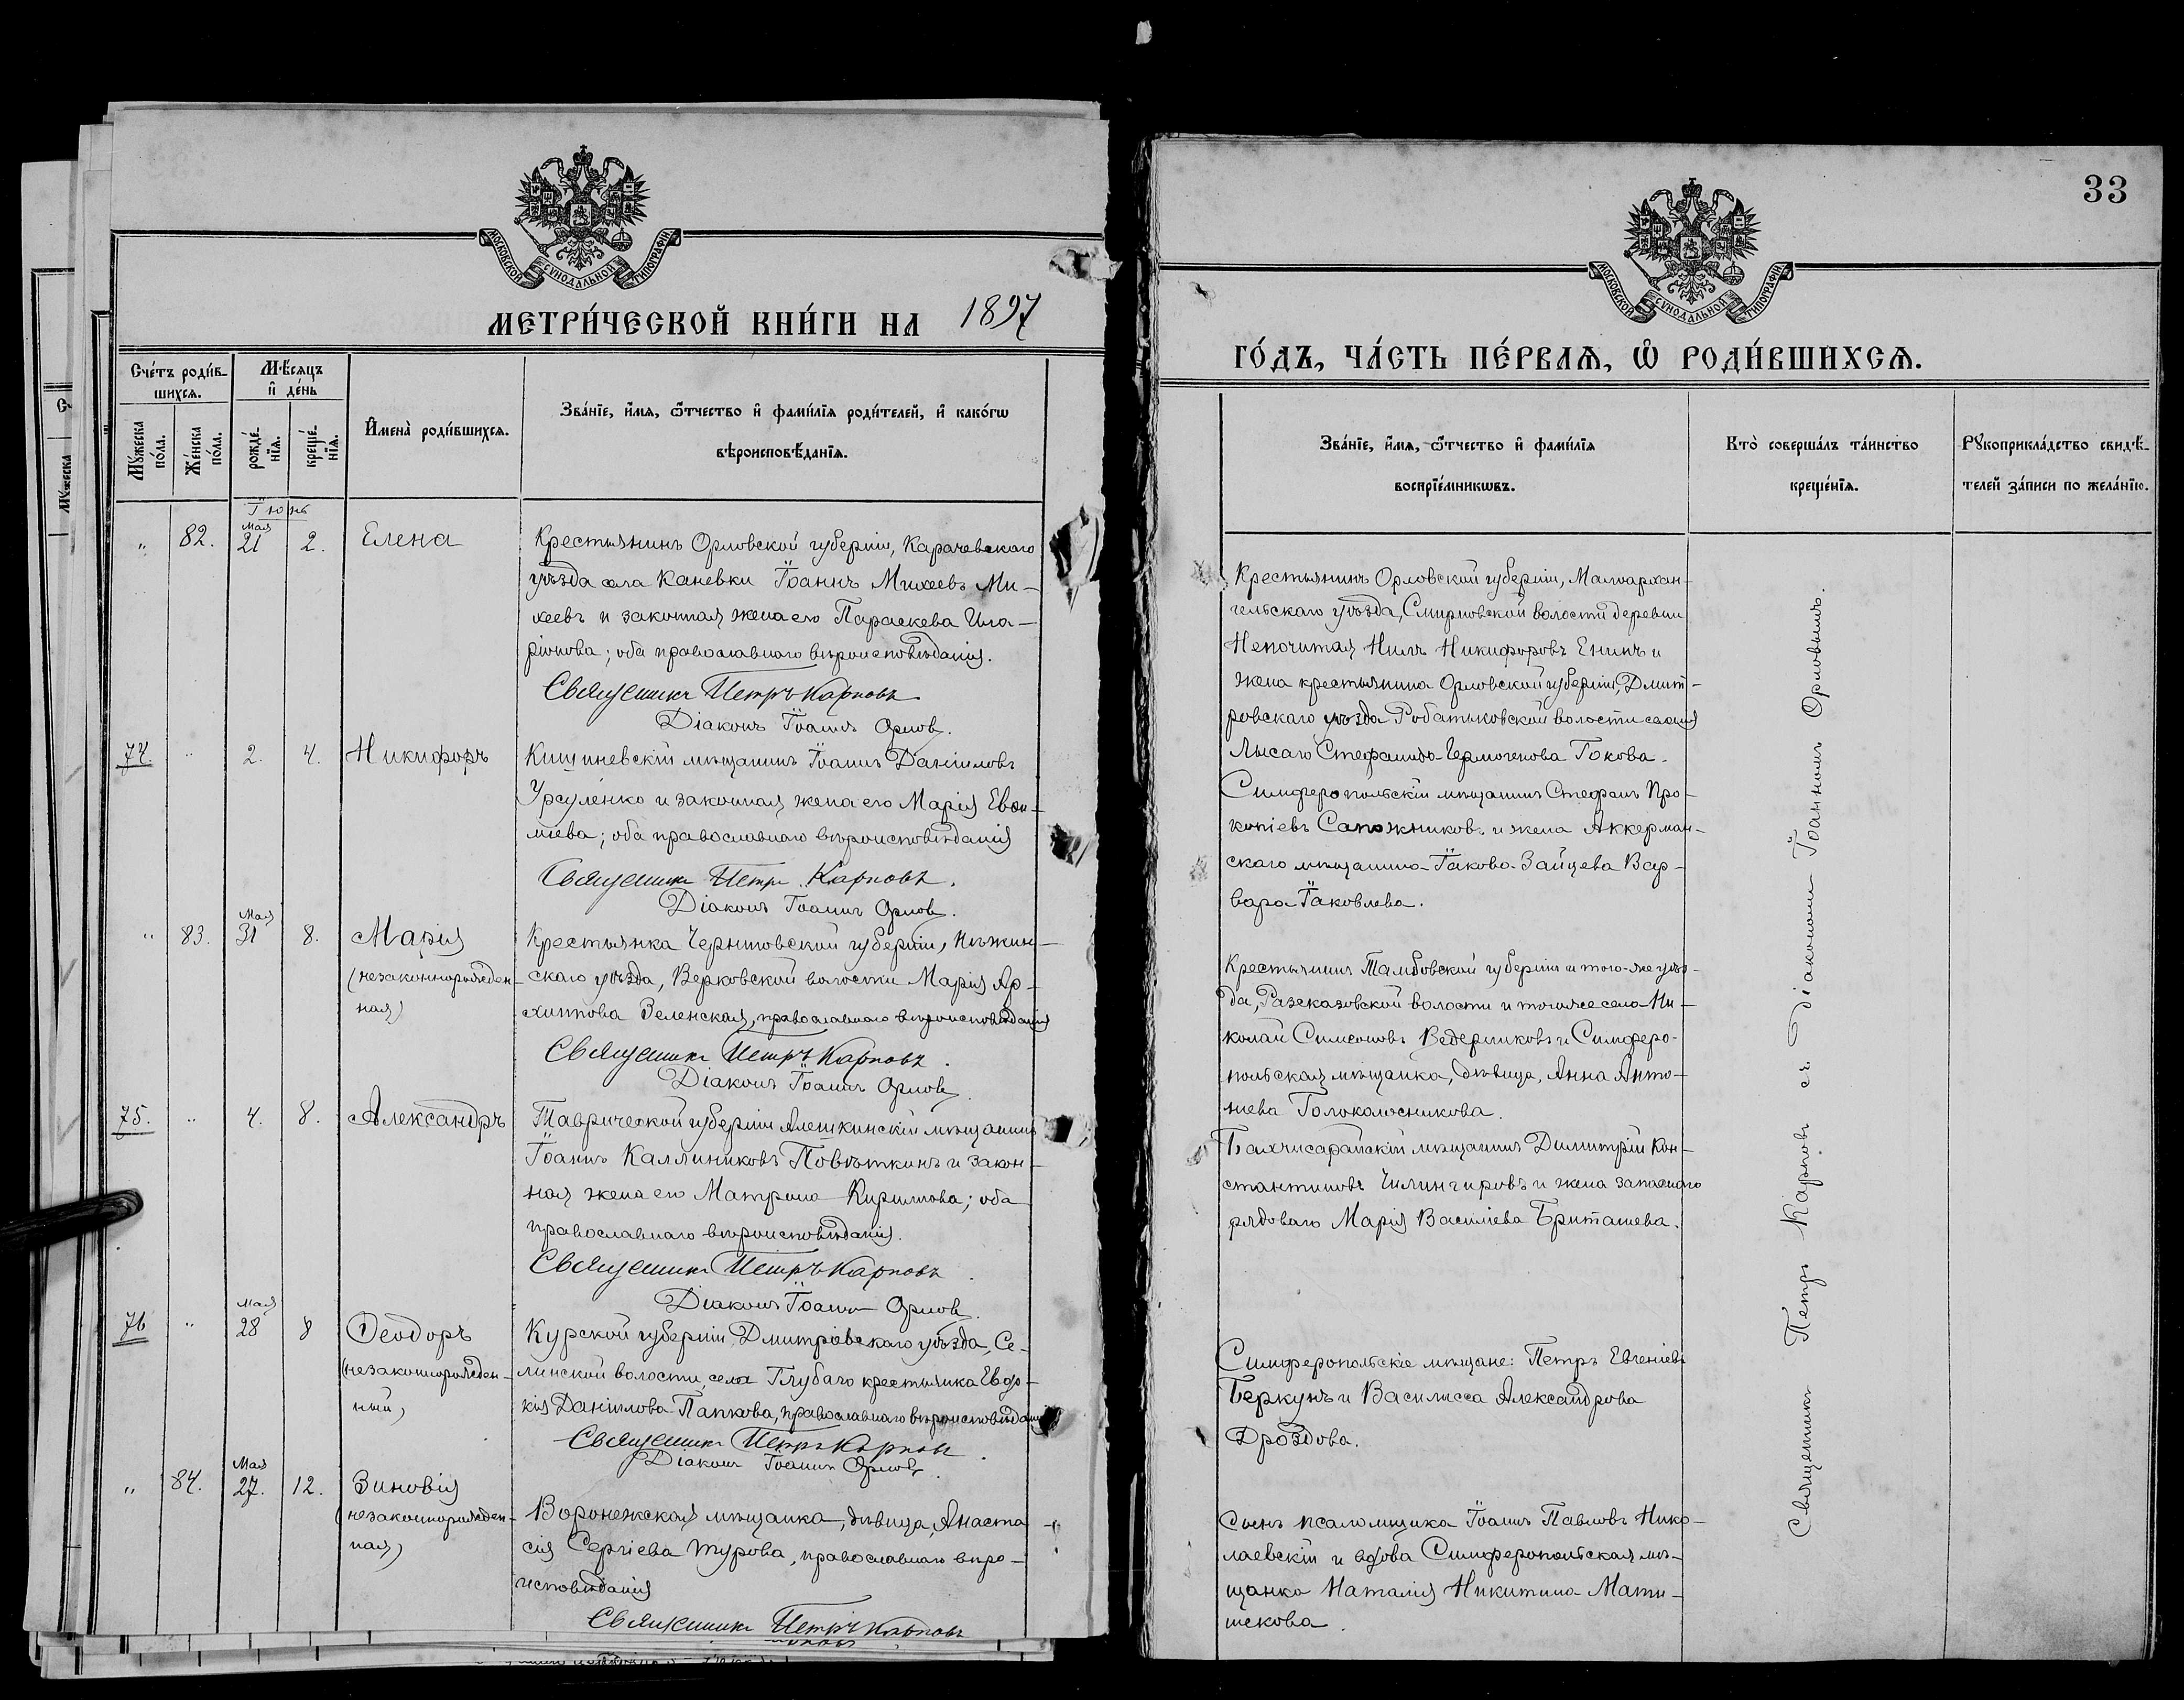 МОСКОВСКОЙ СУНОДАЛЬНОЙ ТИПОГРАФІИ
МЕТРИ́ЧЕСКОЙ КНИ́ГИ НА 1897
Сче́тъ роди́в-
шихсѧ.
Мѣ́сѧцъ
и҆ де́нь
Мꙋ́жеска
по́ла.
Же́нска
по́ла.
рожде́-
нїѧ.
креще́-
нїѧ.
И҆мена̀ роди́вшихсѧ.
Зва́нїе, и҆́мѧ, ѻ҆́тчество и҆ фами́лїѧ роди́телей, и҆ како́гѡ
вѣроисповѣ́данїѧ.
Іюнь
" 82. Мая 21 2. Елена
Крестьянинъ Орловской губерніи, Карачевскаго
уѣзда села Каневки Іоаннъ Михеевъ Ми-
хеевъ и законная жена его Параскева Ила-
ріонова; оба православнаго вѣроисповѣданія.
Священникъ Петръ Карповъ
Діаконъ Іоаннъ Орловъ.
74. " 2. 4. Никифоръ
Кишиневскій мѣщанинъ Іоаннъ Даніиловъ
Урсуленко и законная жена его Марія Евѳи-
міева; оба православнаго вѣроисповѣданія
Священникъ Петръ Карповъ.
Діаконъ Іоаннъ Орловъ.
" 83. Мая 31 8. Марія
(незаконнорожден-
ная)
Крестьянка Черниговской губерніи, Нѣжин-
скаго уѣзда, Верковской волости Марія Ар-
хиппова Зеленская, православнаго вѣроисповѣданія
Священникъ Петръ Карповъ.
Діаконъ Іоаннъ Орловъ.
75. " 4. 8. Александръ
Таврической губерніи Алешкинскій мѣщанинъ
Іоаннъ Каллиниковъ Повѣткинъ и закон-
ная жена его Матрона Кириллова; оба
православнаго вѣроисповѣданія.
Священникъ Петръ Карповъ.
Діаконъ Іоаннъ Орловъ
76 " Мая 28 8 Ѳеодоръ
(незаконнорожден-
ный)
Курской губерніи Дмитріевскаго уѣзда, Се-
линской волости, села Глубаго крестьянка Евдо-
кія Даніилова Папкова, православнаго вѣроисповѣданія
Священникъ Петръ Карповъ.
Діаконъ Іоаннъ Орловъ.
" 84. Мая 27. 12. Зиновія
(незаконнорожден-
ная)
Воронежская мѣщанка, дѣвица, Анаста-
сія Сергіева Турова, православнаго вѣро-
исповѣданія
Священникъ Петръ Карповъ
33
МОСКОВСКОЙ СУНОДАЛЬНОЙ ТИПОГРАФІИ
ГО́ДЪ, ЧА́СТЬ ПЕ́РВАѦ, Ѡ҆ РОДИ́ВШИХСѦ.
Зва́нїе, и҆́мѧ, ѻ҆́тчество и҆ фами́лїѧ
воспрїе́мникѡвъ.
Кто̀ соверша́лъ та́инство
креще́нїѧ.
Рꙋкоприкла́дство свидѣ́-
телей за́писи по жела́нїю.
Крестьянинъ Орловской губерніи, Малоархан-
гельскаго уѣзда, Смирновской волости деревни
Непочитая Нилъ Никифоровъ Енинъ и
жена крестьянина Орловской губерніи, Дмит-
ровскаго уѣзда Робатьковской волости селенія
Лысаго Стефанида Гермогенова Гокова.
Симферопольскій мѣщанинъ Стефанъ Про-
копіевъ Сапожниковъ и жена Аккерман-
скаго мѣщанина Іакова Зайцева Вар-
вара Іаковлева.
Крестьянинъ Тамбовской губерніи и того-же уѣз-
да, Разсказовской волости и тогоже села Ни-
колай Симеоновъ Ведерниковъ и Симферо-
польская мѣщанка, дѣвица, Анна Анто-
ніева Голоколосникова.
Бахчисарайскій мѣщанинъ Димитрій Кон-
стантиновъ Чилингировъ и жена запаснаго
рядоваго Марія Василіева Бриташева.
Симферопольскіе мѣщане: Петръ Евгеніевъ
Беркунъ и Василисса Александрова
Дроздова.
Сынъ псаломщика Іоаннъ Павловъ Нико-
лаевскій и вдова Симферопольская мѣ-
щанка Наталія Никитина Мати-
шекова.
Священникъ Петръ Карповъ съ Діакономъ Іоанномъ Орловымъ.